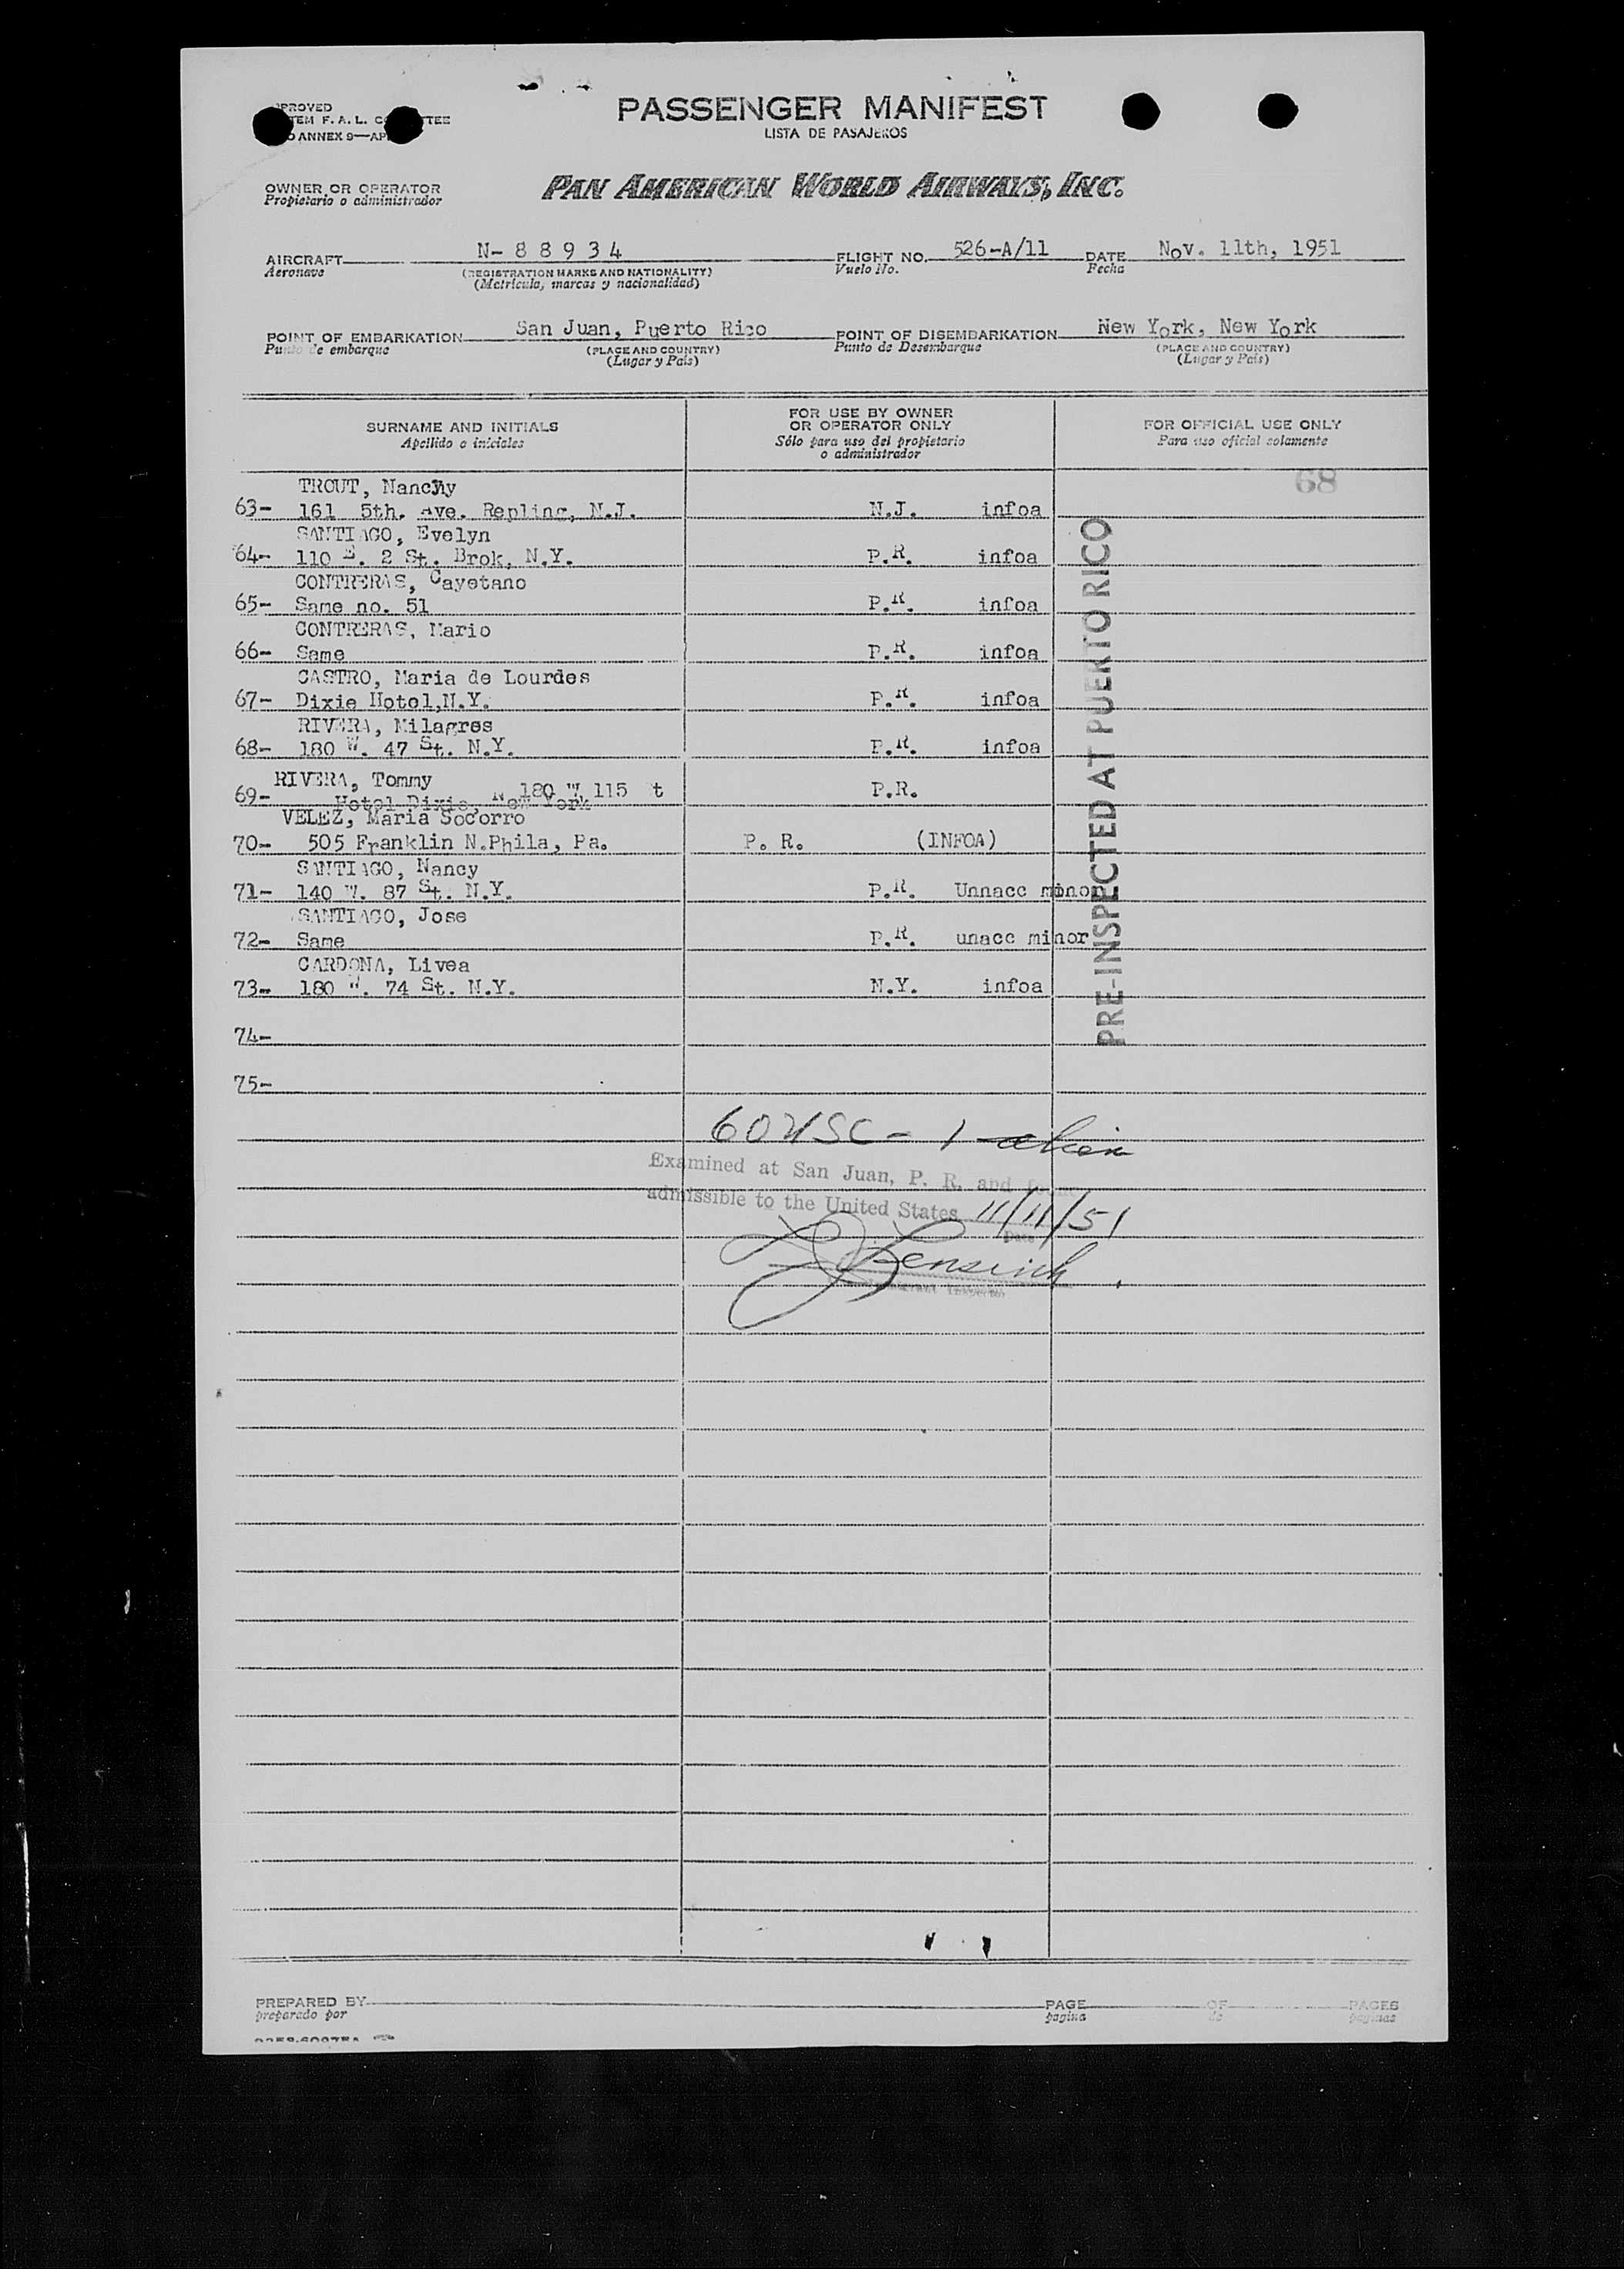 PASSENGER MANIFEST
LISTA DE PASAJEROS
F. A. L.
ANNEX 9
OWNER OR OPERATOR
Propietario o administrador
PAN AMERICAN WORLD AIRWAYS, INC.
AIRCRAFT N- 8 8 9 3 4 FLIGHT NO. 526-A/11 DATE Nov. 11th, 1951
Aeronave (REGISTRATION MARKS AND NATIONALITY) Vuelo No. Fecha
(Matricula, marcas y nacionalidad)
POINT OF EMBARKATION San Juan, Puerto Rico POINT OF DISEMBARKATION New York, New York
Punto de embarque (PLACE AND COUNTRY) Punto de Desembarque (PLACE AND COUNTRY)
(Lugar y País) (Lugar y País)
SURNAME AND INITIALS
Apellido e iniciales
FOR USE BY OWNER
OR OPERATOR ONLY
Sólo para uso del propietario
o administrador
FOR OFFICIAL USE ONLY
Para uso oficial solamente
68
TROUT, Nanchy
63- 161 5th. Ave. Repling, N.J. N.J. infoa
SANTIAGO, Evelyn
64- 110 E. 2 St. Brok, N.Y. P.R. infoa
CONTRERAS, Cayetano
65- Same no. 51 P.R. infoa
CONTRERAS, Mario
66- Same P.R. infoa
CASTRO, Maria de Lourdes
67- Dixie Hotel, N.Y. P.R. infoa
RIVERA, Milagres
68- 180 W. 47 St. N.Y. P.R. infoa
RIVERA, Tommy
69- Hotel Dixie, New York 180 W 115 t P.R.
VELEZ, Maria Socorro
70- 505 Franklin N.Phila, Pa. P. R. (INFOA)
SANTIAGO, Nancy
71- 140 W. 87 St. N.Y. P.R. Unnacc minor
SANTIAGO, Jose
72- Same P.R. unacc minor
CARDONA, Livea
73- 180 W. 74 St. N.Y. N.Y. infoa
74-
75-
PRE-INSPECTED AT PUERTO RICO
60 USC - 1 alien
Examined at San Juan, P. R. and found
admissible to the United States 11/11/51
Date
PREPARED BY PAGE OF PAGES
preparado por pagina de paginas